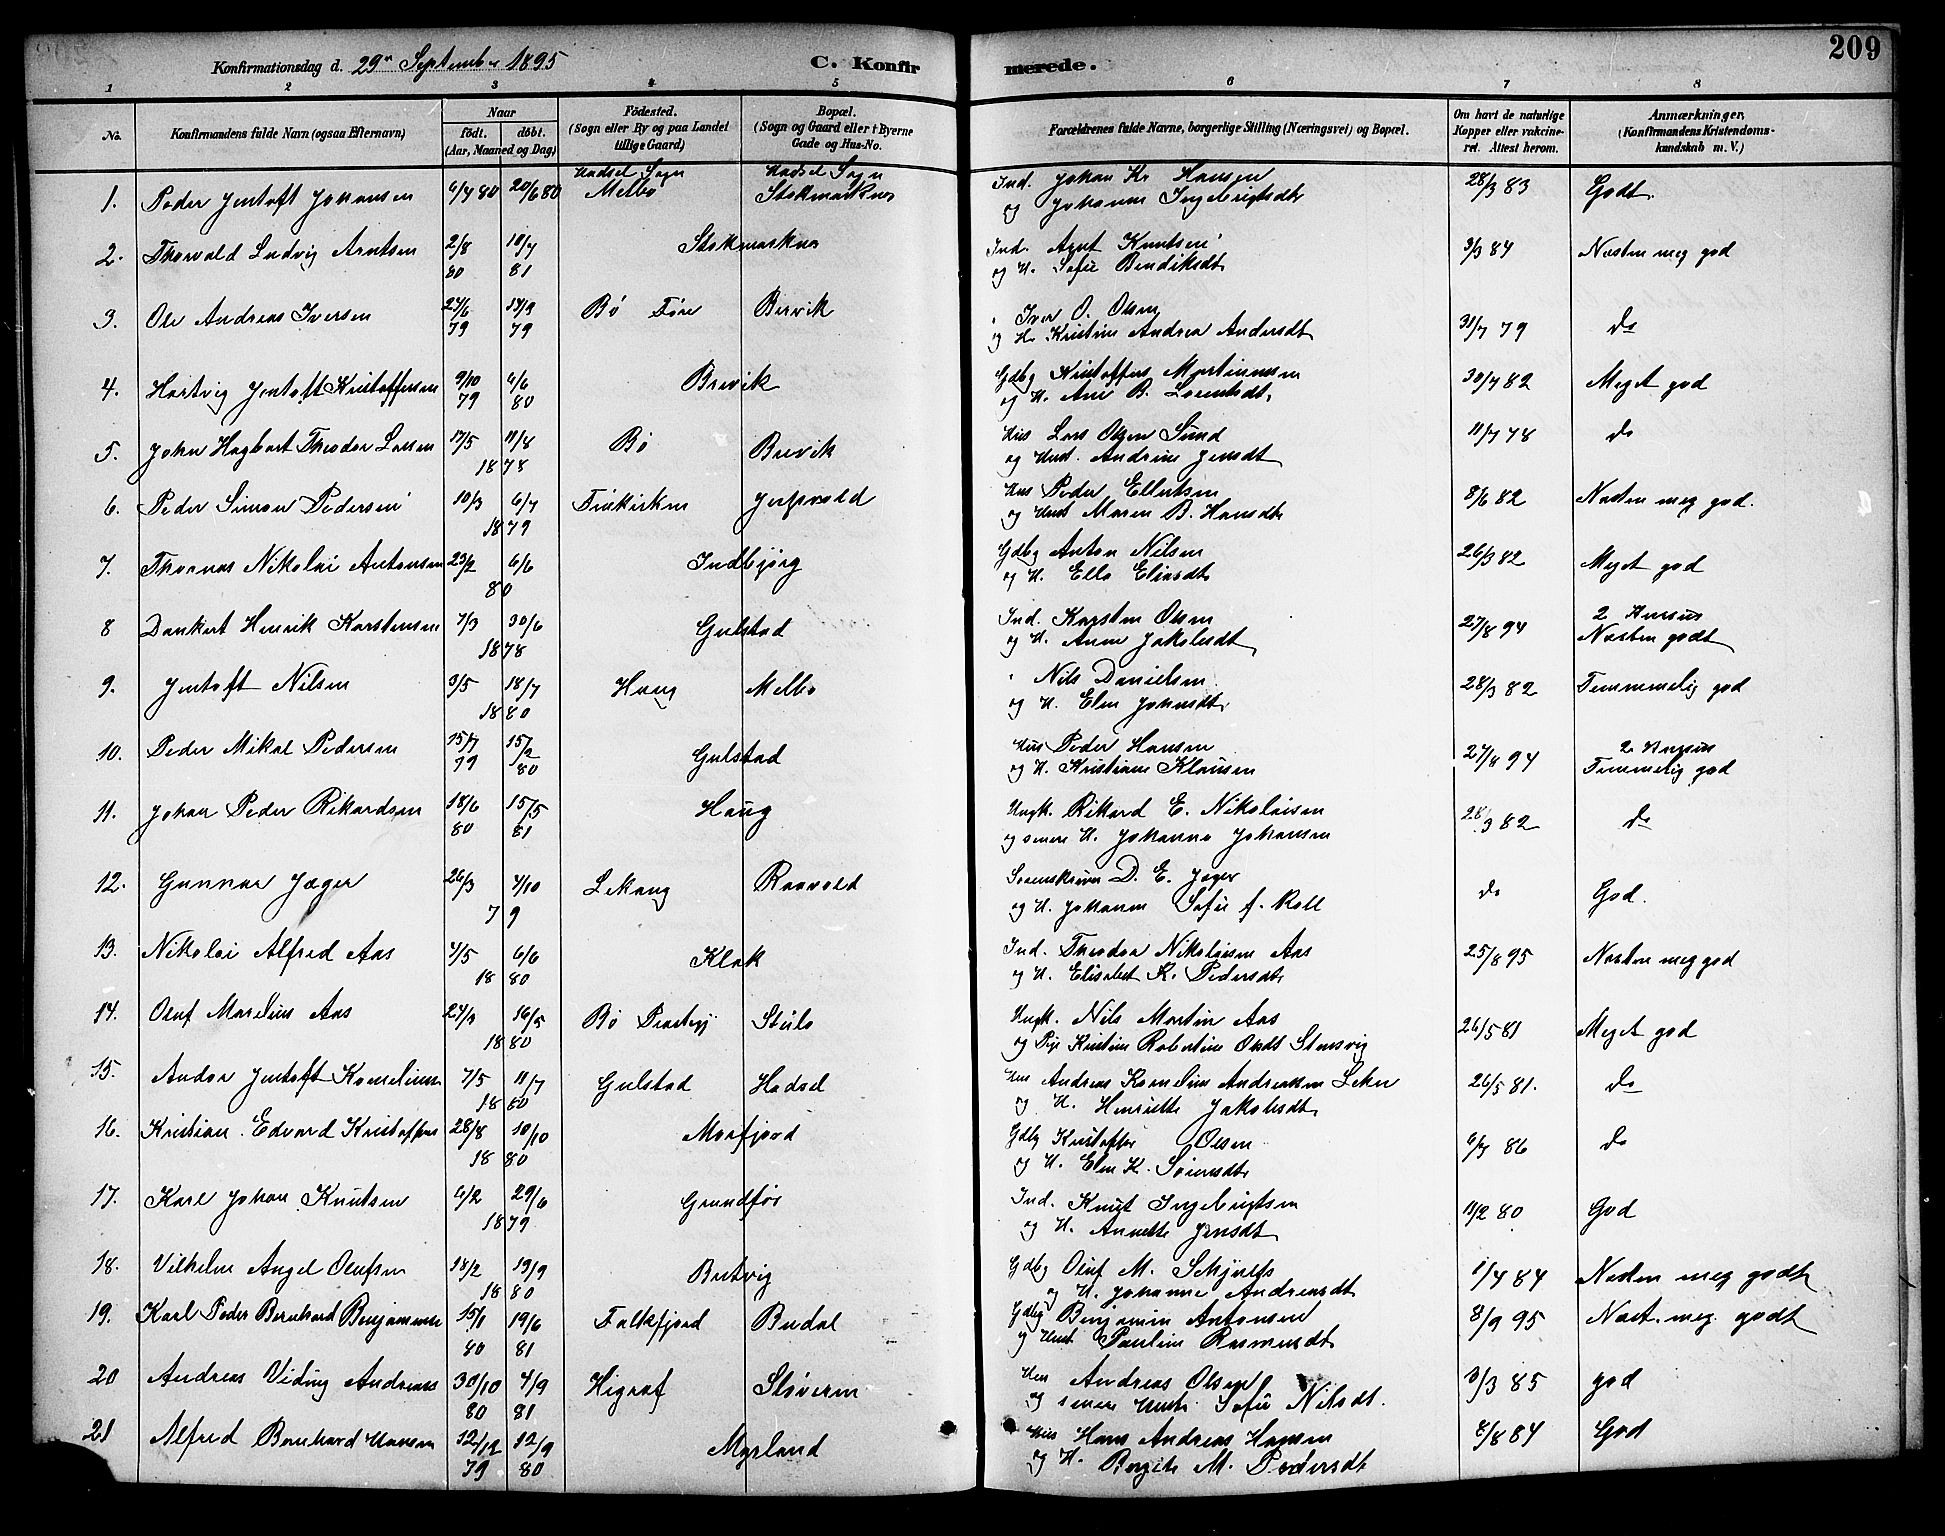 Konfirmationsdag d. 29de September 1895 C. Konfirmerede. 209
1 2 3 4 5 6 7 8
No. Konfirmandens fulde Navn (ogsaa Efternavn) Naar født. døbt. (Aar, Maaned og Dag) Fødested. (Sogn eller By og paa Landet tillige Gaard) Bopæl. (Sogn og Gaard eller i Byerne Gade og Hus-No. Forældrenes fulde Navne, borgerlige Stilling (Næringsvei) og Bopæl. Om havt de naturlige Kopper eller vakcineret. Attest herom. Anmærkninger, (Konfirmandens Kristendomskundskab m. V.)
Hadsel Sogn Hadsel Sogn
1. Peder Jentoft Johansen 6/4 80 20/6 80 Melbo Stokmarknes Ind. Johan Kr Hansen 28/3 83 Godt
og Johanna Ingebrigtsdt
2. Thorvald Ludvig Arntsen 2/8 80 18/4 81 Stokmarknes Ind. Arnt Knutsen 3/3 84 Næsten meg god
og H. Sofie Bendiksdt
3. Ole Andreas Iversen 24/6 79 14/9 79 Bø Føre Brevik Iver O. Olsen 31/7 79 do
og H. Kristine Andrea Andersdt
4. Hartvig Jentoft Kristoffersen 9/10 79 6/6 80 Brevik Gdbg Kristoffer Martinussen 30/7 82 Meget god
og H. Ane B. Lorentsdt.
5. John Hagbart Theodor Larsen 17/5 11/8 1878 Bø Brevik Hus Lars Olsen Sund 11/7 78 do
og Hust. Andrine Jensdt
6. Peder Simon Pedersen 10/3 6/7 1879 Jerfvold Hus Peder Ellertsen 8/6 82 Næsten meg god.
og Hust Maren B. Hansdt
7. Thomas Nikolai Antonsen 23/2 6/6 80 Indbjørg Gdbg Anton Nilsen 26/3 82 Meget god
og H. Ella Eliasdt
8 Dankert Henrik Karstensen 7/3 30/6 1878 Gulstad Ind. Karsten Olsen 27/8 94 2 Kursus
og H. Anne Jakobsdt Næsten godt
9. Jentoft Nilsen 3/5 18/7 1880 Haug Melbo Nils Danielsen 28/3 82 Temmelig god
og H. Elen Johnsdt.
10. Peder Mikal Pedersen 15/7 79 15/2 80 Gulstad Hus Peder Hansen 27/8 94 2 Kursus
og H. Kristiane Klausen Temmelig god
11. Johan Peder Rikardsen 18/6 80 15/5 81 Haug Ungk. Rikard E. Nikolaisen 28/3 82 do
og senere H. Johanna Johansen
12. Gunnar Jæger 26/3 4/10 79 Lekang Raavold Sorenskriver D. E. Jæger do God.
og H. Johanne Sofie f. Roll
13. Nikolai Alfred Aas 4/5 6/6 1880 Klak Ind. Theodor Nikolaisen Aas 25/8 95 Næsten meg god
og H. Elisabet K. Pedersdt.
14. Oluf Marelius Aas 24/3 16/5 1880 Bø Prestegj Stulo Ungk. Nils Martin Aas 26/5 81 Meget god
og Pige Kristine Robertine Olsdt Stensvig
15. Andor Jentoft Korneliusen 7/5 11/7 1880 Gulstad Hadsel Hus Andreas Kornelius Andreassen Leku 26/5 81. do
og H. Henriette Jakobsdt.
16. Kristian Edvard Kristoffers 28/8 10/10 1880 Morfjord Gdbg Kristoffer Olsen 6/7 86 do
og H. Elen K. Sørensdt.
17. Karl Johan Knutsen 6/2 29/6 1879 Grundfør Ind. Knut Ingebrigtsen 11/2 80 God
og H. Annette Jensdt
18. Vilhelm Angel Olufsen 18/2 19/9 1880 Brotvig Gdbg Oluf M. Schjølfs 1/4 84 Næsten meg godt
og H. Johanne Andreasdt
19. Karl Peder Bernhard Benjaminse 15/1 80 19/6 81 Falkfjord Budal Gdbg Benjamin Antonsen 8/9 95 Næst. meg. godt
og Hust Pauline Rasmusdt
20 Andreas Viding Andreass 30/10 80 4/9 81 Higraf Støverin Hus Andreas Olsen 3/3 85 god
og senere Hust Sofie Nilsdt.
21 Alfred Bernhard Hansen 12/12 79 12/9 80 Myrland Hus Hans Andreas Hansen 8/8 84 God
og H. Bergite M. Pedersdt